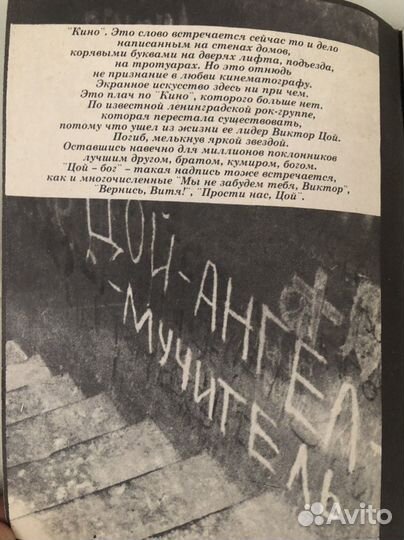 "Кино". Это слово встречается сейчас то и дело
написанным на стенах домов,
корявыми буквами на дверях лифта, подъезда,
на тротуарах. Но это отнюдь
не признание в любви кинематографу.
Экранное искусство здесь ни при чем.
Это плач по "Кино", которого больше нет.
По известной ленинградской рок-группе,
которая перестала существовать,
потому что ушел из жизни ее лидер Виктор Цой.
Погиб, мелькнув яркой звездой.
Оставшись навечно для миллионов поклонников
лучшим другом, братом, кумиром, богом.
"Цой – бог" – такая надпись тоже встречается,
как и многочисленные "Мы не забудем тебя, Виктор",
"Вернись, Витя!", "Прости нас, Цой".
ЦОЙ-АНГЕЛ-
-МУЧИТЕЛЬ
Avito